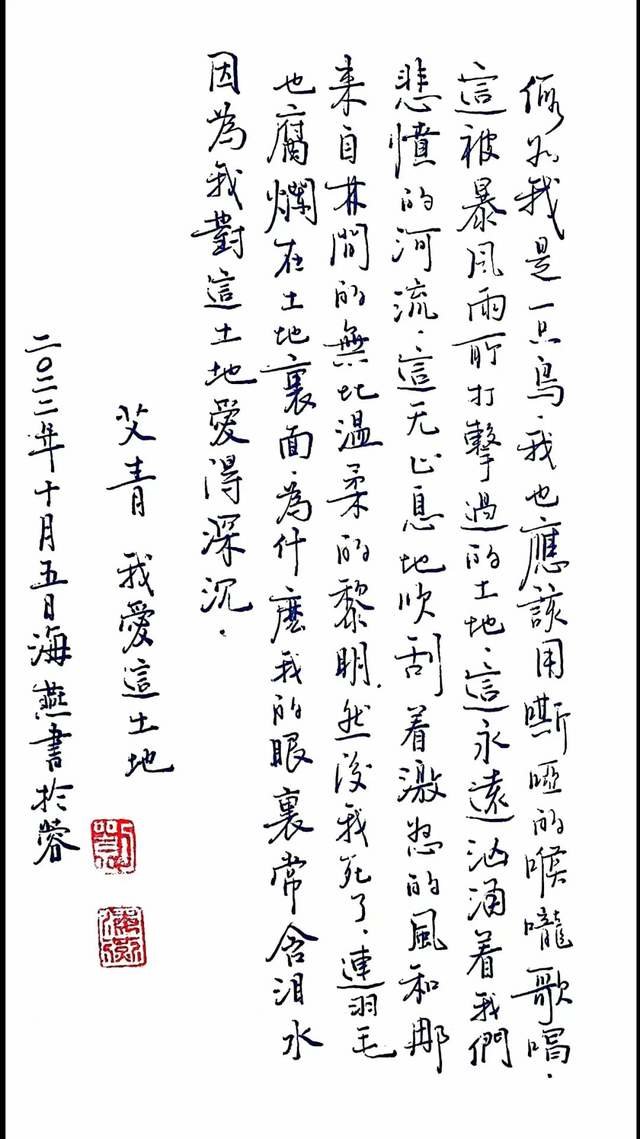 假如我是一只鳥，我也應該用嘶啞的喉嚨歌唱．
這被暴风雨所打擊過的土地，這永遠汹涌着我們
悲憤的河流，這无止息地吹刮着激怒的風和那
来自林間的無比温柔的黎明．然後我死了，連羽毛
也腐爛在土地裏面．為什麽我的眼裏常含泪水
因為我對這土地愛得深沉．
艾青 我愛這土地
二〇二二年十月五日海燕書於蓉
海燕